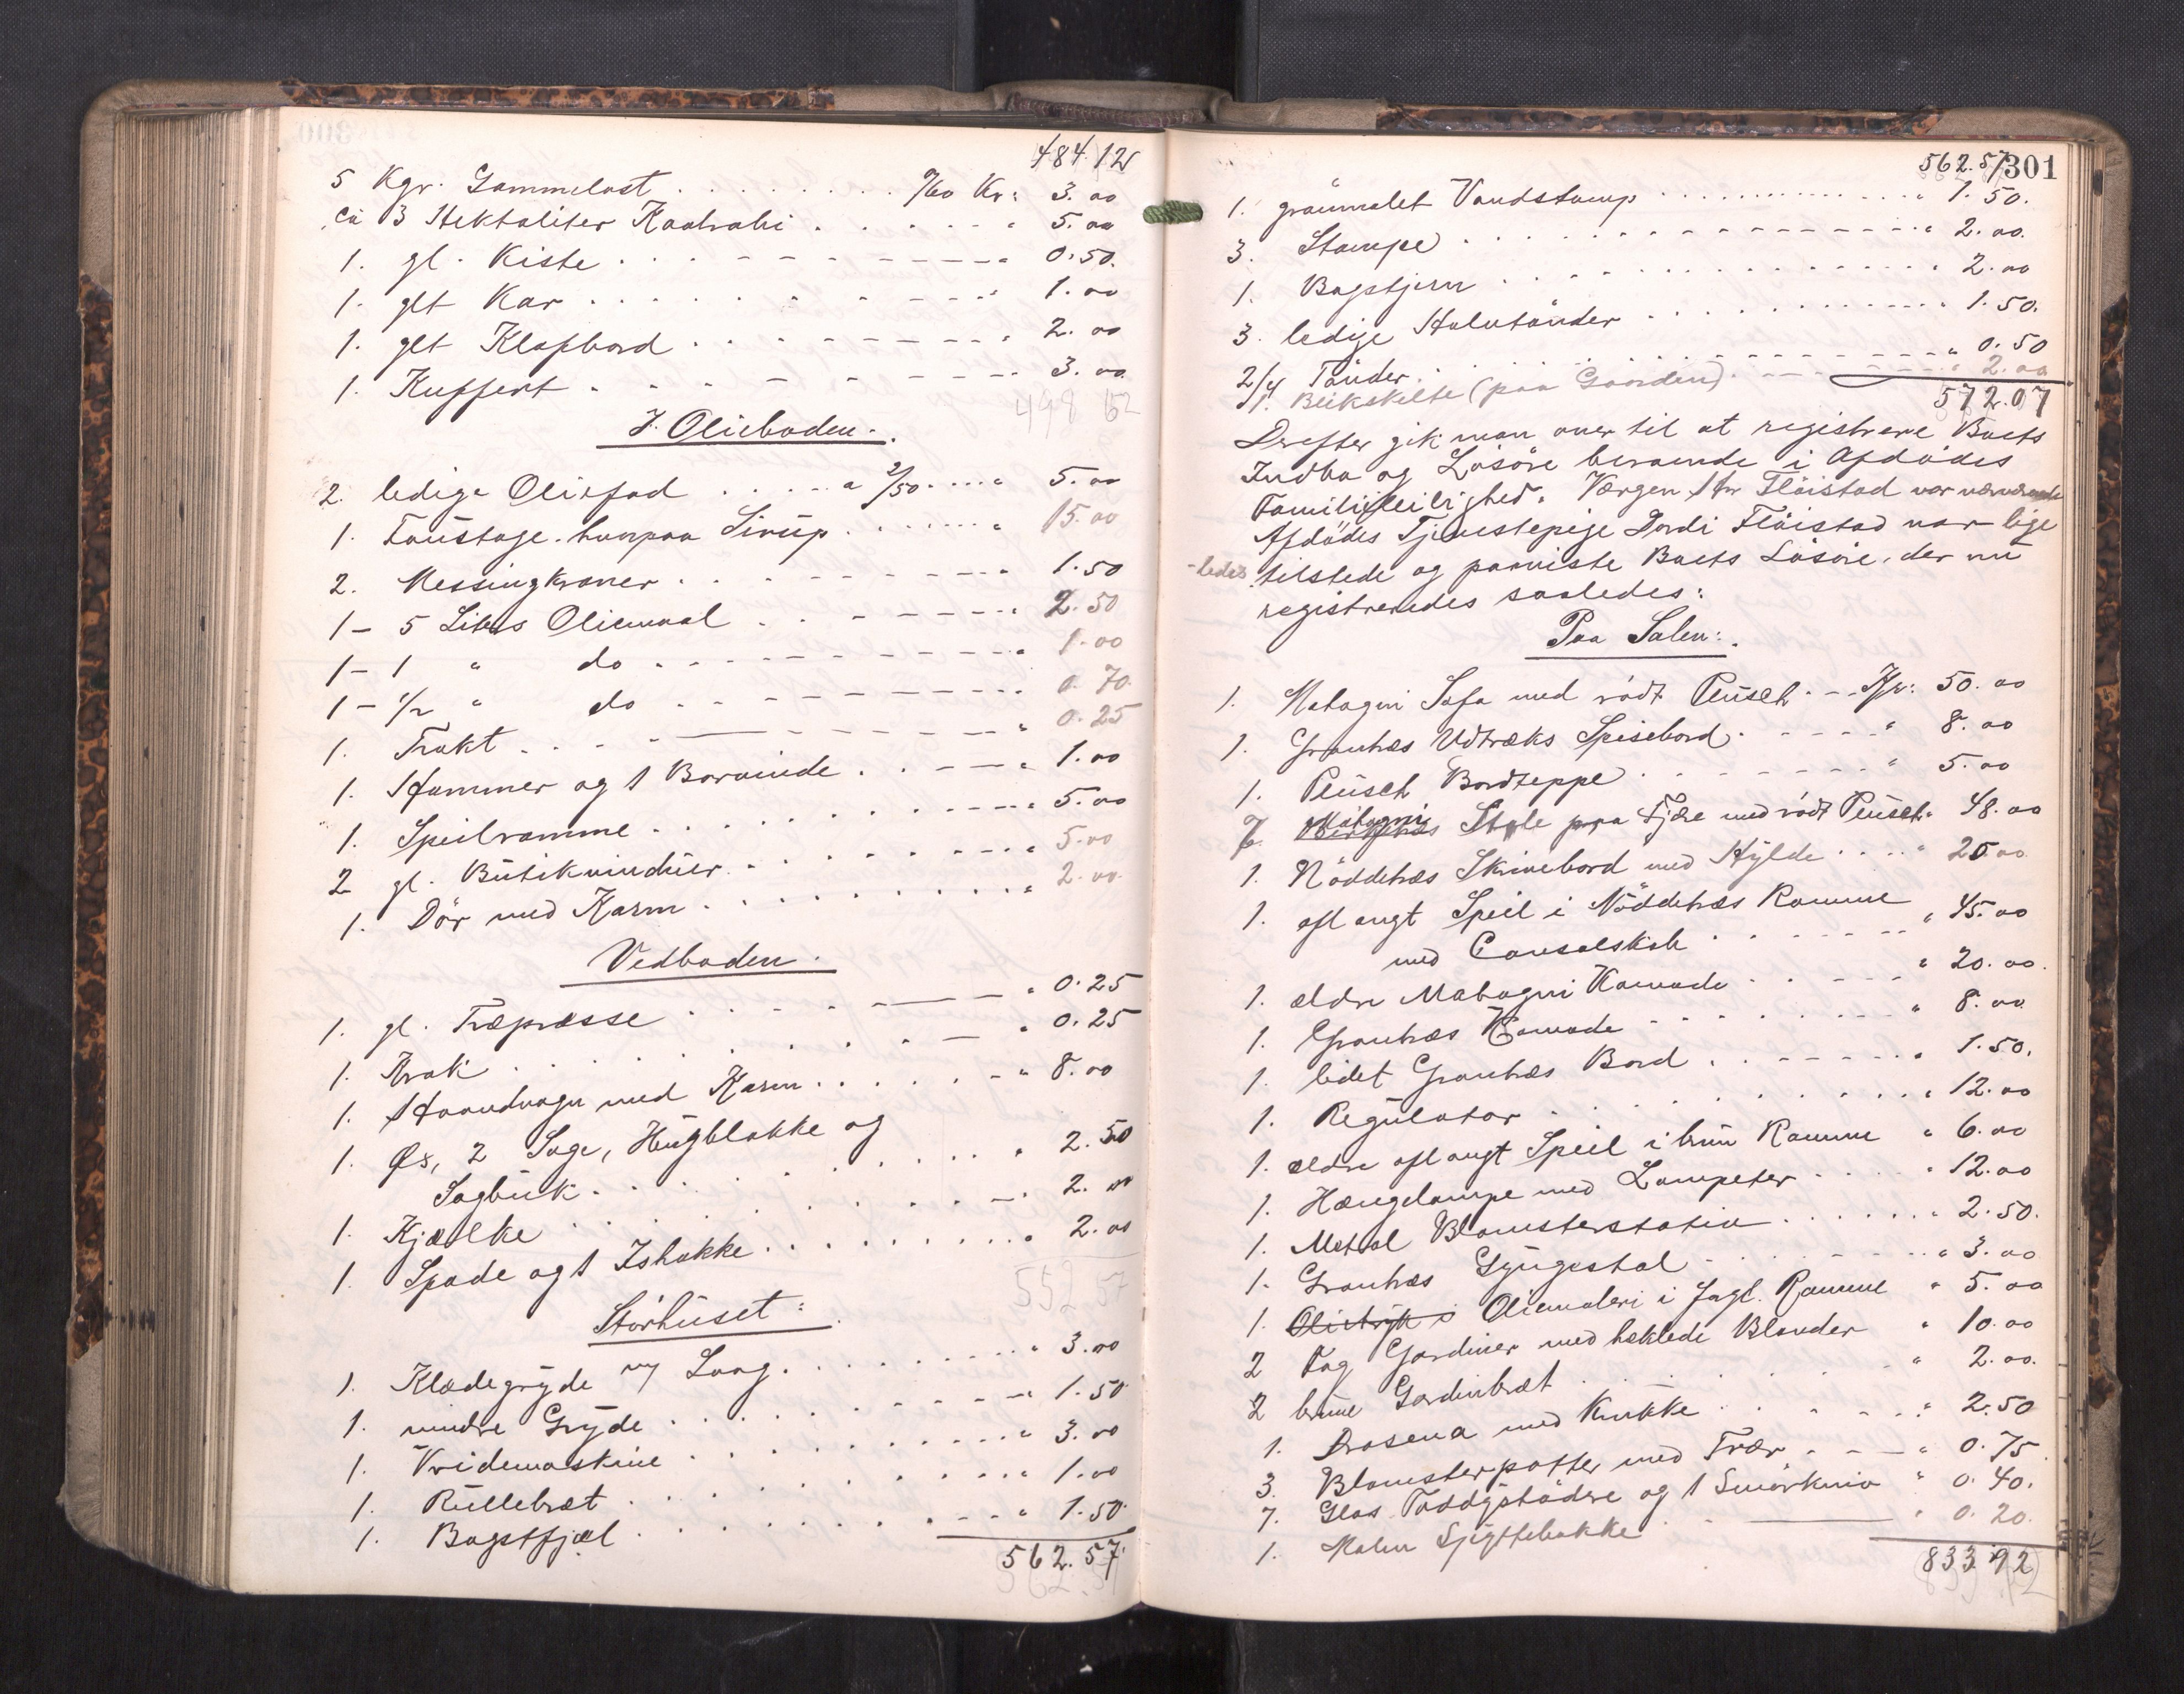 484.12
5 Kgr. Gammelost . . . . . . . . . %60 Kr: 3.00
ca 3 Hektoliter Kaalrabi . . . . . . " 5.00
1. gl. Kiste . . . - - - - - - - " 0.50.
1. glt Kar . . . . . . . - - - - " 1.00
1. glt Klafbord . . . . . - - - - " 2.00
1. Kuffert - - - - - - - - - 3.00
498 62
I Olieboden.
2. ledige Oliefad . . . . a 2/50 . . . " 5.00
1. Foustage hvorpaa Sirup . . . . . . . " 15.00
2. Messingkraner . . . . - - - - - " 1.50
1 - 5 Liters Oliemaal . . - - - - - " 2.50
1 - 1 " do . - - - - - - - " 1.00
1 - 1/2 " do - - - - - - - - 0.70.
1. Trakt . . . - - - - - - - " 0.25
1. Hammer og 1 Borvinde . . - - - " 1.00
1. Speilramme . . . . . . . . - - - " 5.00
2 gl. Butikvinduer . . . . . . . - - " 5.00
1. Dör med Karm . . . . . . . . . " 2.00.
Vedboden.
1. gl. Træpresse . . . . - - - - - " 0.25
1. Krak . . . . . . . . . - - " 0.25
1. Haandvogn med Karm . . . . . - " 8.00
1. Øs, 2 Sage, Hugblokke og
Sagbuk . . . . . . . . . . . " 2.50
1. Kjælke . . . . . . . . . . - - 2.00
1. Spade og 1 Ishakke . . . . . . . . . " 2.00
552 57
Störhuset:
1. Klædegryde m/ Laag . . . . . . . . . " 3.00
1. mindre Gryde . . . . . . . . . - - " 1.50
1. Vridemaskine . . . . . . . . . . . " 3.00
1. Rullebræt . . . . . . . . . . . . " 1.00
1. Bagstfjæl . . . . . . . . . . - - " 1.50
562.57.
562.57
562.57 301
1. graamalet Vandstamp . . . . . . . . . . " 1.50.
3. Stampe . . . . . . . - - - - - - - - " 2.00.
1. Bagstjern . . . . . . . . . . . . . . " 2.00
3. ledige Halvtönder . . . . . . . . . . . . " 1.50.
2/4 Tönder . . . . . - - - - - - - - - " 0.50
1. Blikskilte (paa Gaarden) . - - - - - - " 2.00
572.07
Derefter gik man over til at registrere Boets
Indbo og Lösöre beroende i Afdödes
Familieleilighed. Værgen Hr Flöistad var nærværende
Afdödes Tjenestepige Dordi Flöistad var lige
-ledes tilstede og paaviste Boets Lösöre, der nu
registreredes saaledes:
Paa Salen:
1. Mahogni Sofa med rödt Plusch - - Kr: 50.00
1. Grantræs Udtræks Spisebord . - - - - " 8.00
1. Plusch Bordteppe . - - - - - - - " 5.00
6. Mahogni Stole paa Fjære med rödt Plusch " 48.00
1. Nöddetræs Skrivebord med Hylde . . . . " 25.00
1. aflangt Speil i Nöddetræs Ramme
med Consolskab . . . - - - - - - " 45.00
1. ældre Mahogni Komode . . - - - - " 20.00.
1. Grantræs Komode - - - - - - - - " 8.00
1. lidet Grantræs Bord . . - - - - - - " 1.50.
1. Regulator . . . . . . . . . . . . " 12.00
1. ældre aflangt Speil i brun Ramme " 6.00
1. Hængelampe med Lampeter . . . . " 12.00
1. Metal Blomsterstativ . . . . . . . " 2.50.
1. Grantræs Gyngestol . - - - - - - " 3.00
1. Olietryk i Oliemaleri i forgl. Ramme " 5.00
2 Fag Gardiner med heklede Blonder " 10.00
2 brune Gardinbræt . . . . . . . " 2.00.
1. Drasena med Krukke . . . . - - " 2.50
3. Blomsterpotter med Trær . - - - " 0.75
7. Glas Toddystödere og 1 Smörkniv " 0.40.
1. Malm Sjyttebakke . . - - - - - " 0.20.
833.92